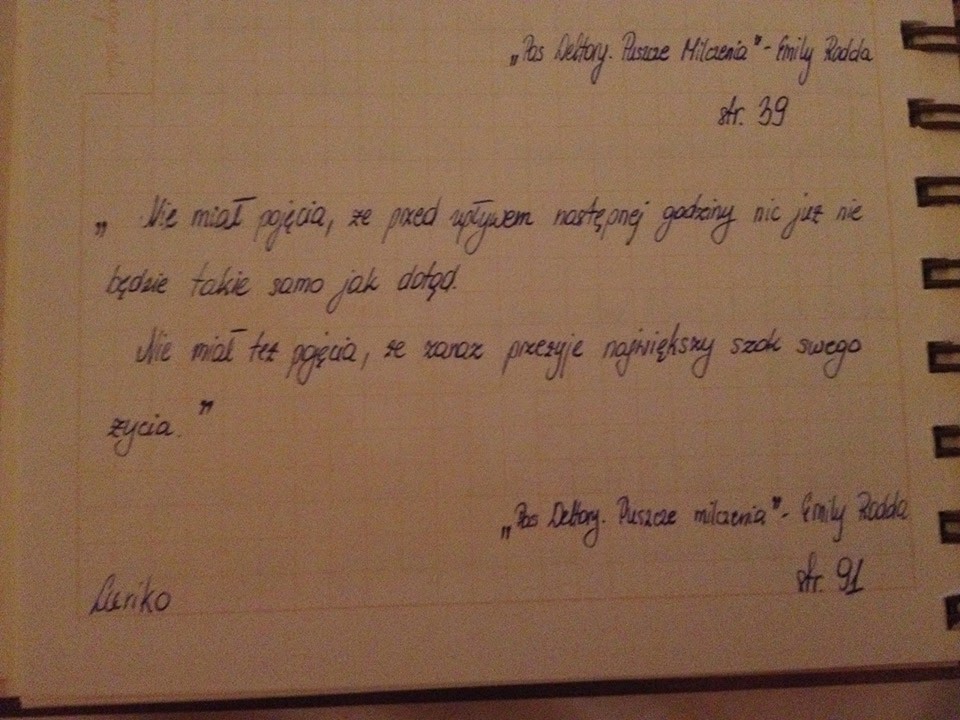 „Pas Deltory. Puszcze Milczenia” - Emily Rodda
str. 39
„ Nie miał pojęcia, że przed upływem następnej godziny nic już nie
będzie takie samo jak dotąd.
Nie miał też pojęcia, że zaraz przeżyje największy szok swego
życia. ”
„Pas Deltory. Puszcze milczenia” - Emily Rodda
str. 91